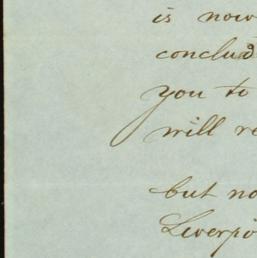 is now
conclud
you to
will re
but no
Liverpo